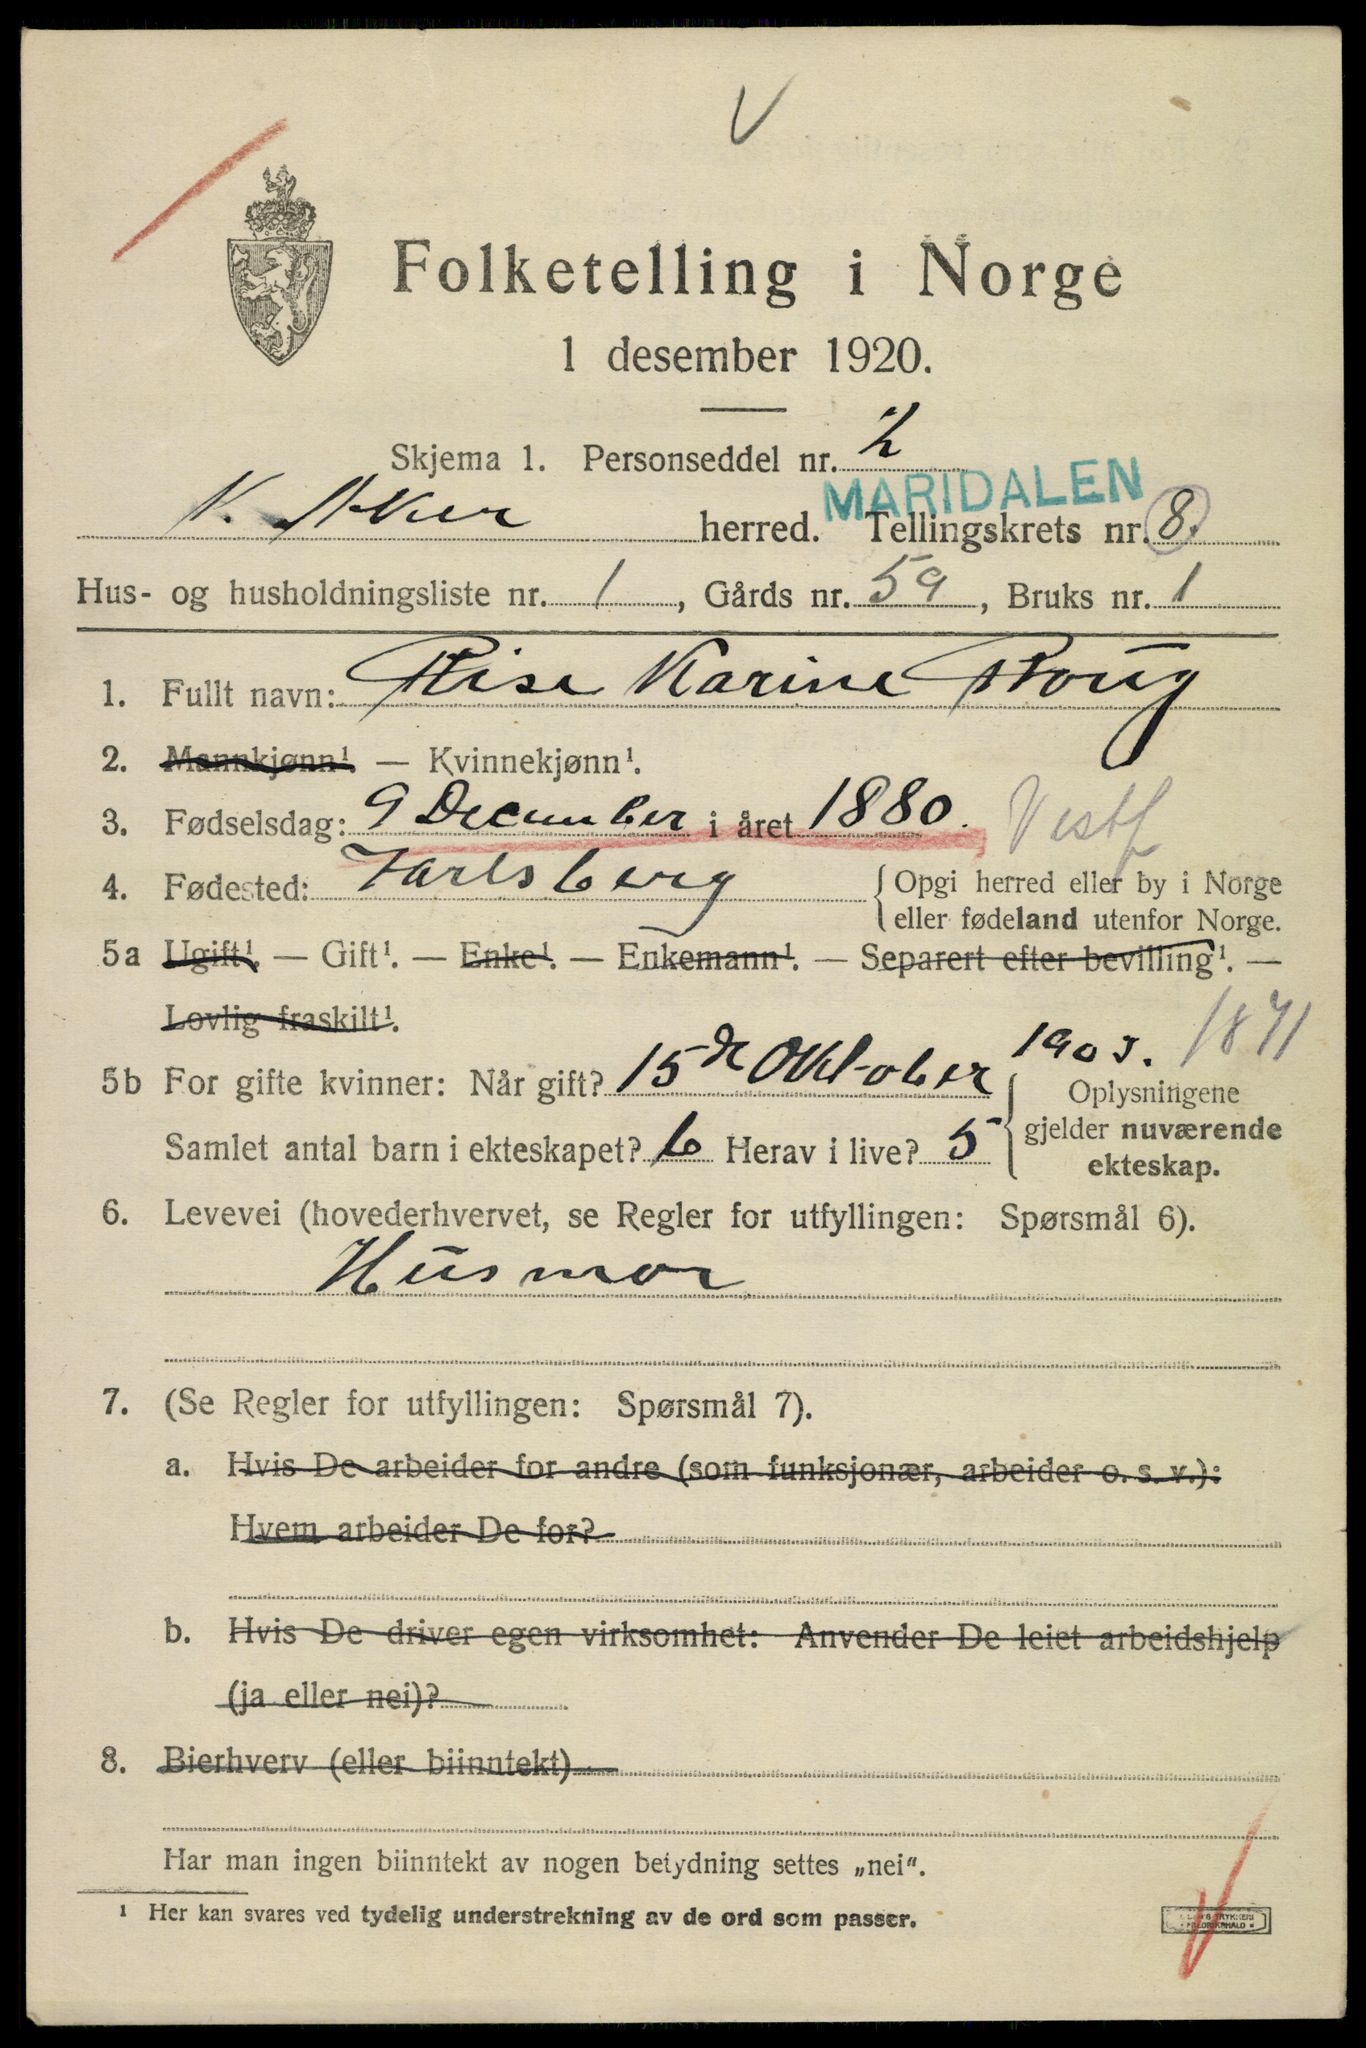 V
Folketelling i Norge
1 desember 1920.
Skjema 1. Personseddel nr. 2
MARIDALEN
V. Aker herred. Tellingskrets nr. 8.
Hus- og husholdningsliste nr. 1, Gårds nr. 59, Bruks nr. 1
1. Fullt navn: Karine
2. Mannkjønn¹. — Kvinnekjønn¹.
3. Fødselsdag: 9 December i året 1880. Vestf
4. Fødested: Jarlsberg {Opgi herred eller by i Norge
eller fødeland utenfor Norge.
5a Ugift¹. — Gift¹. — Enke¹. — Enkemann¹. — Separert efter bevilling¹. —
Lovlig fraskilt¹.
1903. 1871
5b For gifte kvinner: Når gift? 15de Oktober { Oplysningene
Samlet antal barn i ekteskapet? 6 Herav i live? 5 gjelder nuværende
ekteskap.
6. Levevei (hovederhvervet, se Regler for utfyllingen: Spørsmål 6).
Husmor
7. (Se Regler for utfyllingen: Spørsmål 7).
a. Hvis De arbeider for andre (som funksjonær, arbeider o. s. v.):
Hvem arbeider De for?
b. Hvis De driver egen virksomhet: Anvender De leiet arbeidshjelp
(ja eller nei)?
8. Bierhverv (eller biinntekt)
Har man ingen biinntekt av nogen betydning settes „nei".
¹ Her kan svares ved tydelig understrekning av de ord som passer.